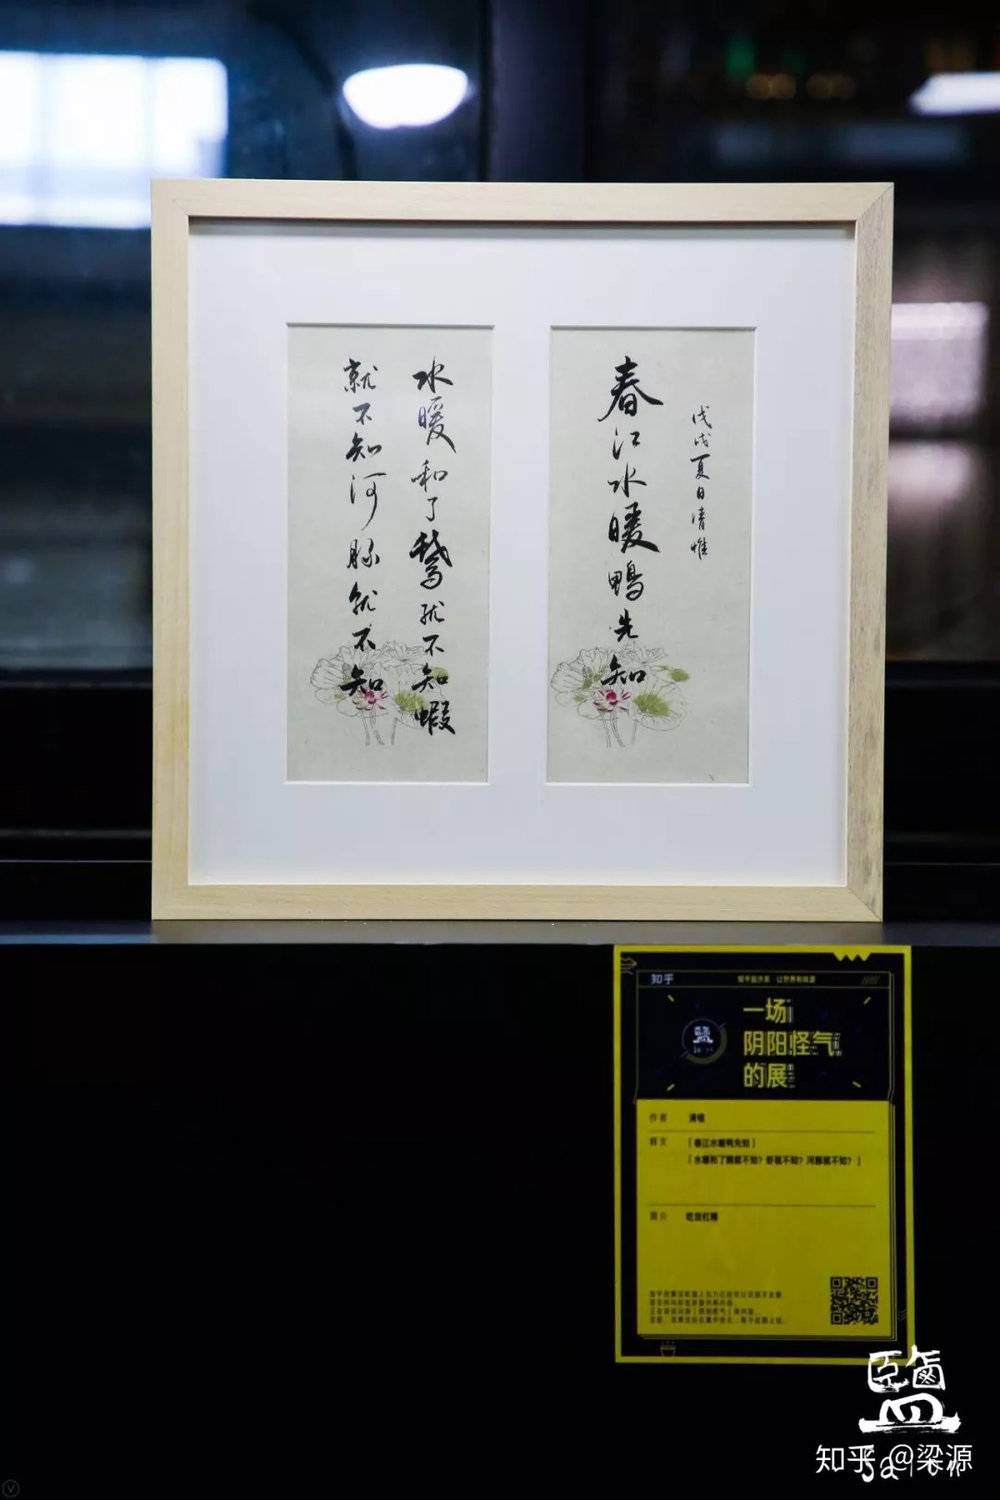 戊戌夏日清惟
春江水暖鴨先知
水暖和了鹅就不知蝦
就不知河豚就不知
知乎
知乎盐沙龙 让世界有味道
一场
阴阳怪气
的展
作者 清惟
释文 「春江水暖鸭先知」
「水暖和了鹅就不知？虾就不知？河豚就不知？」
简介
鹽
知乎 @梁源